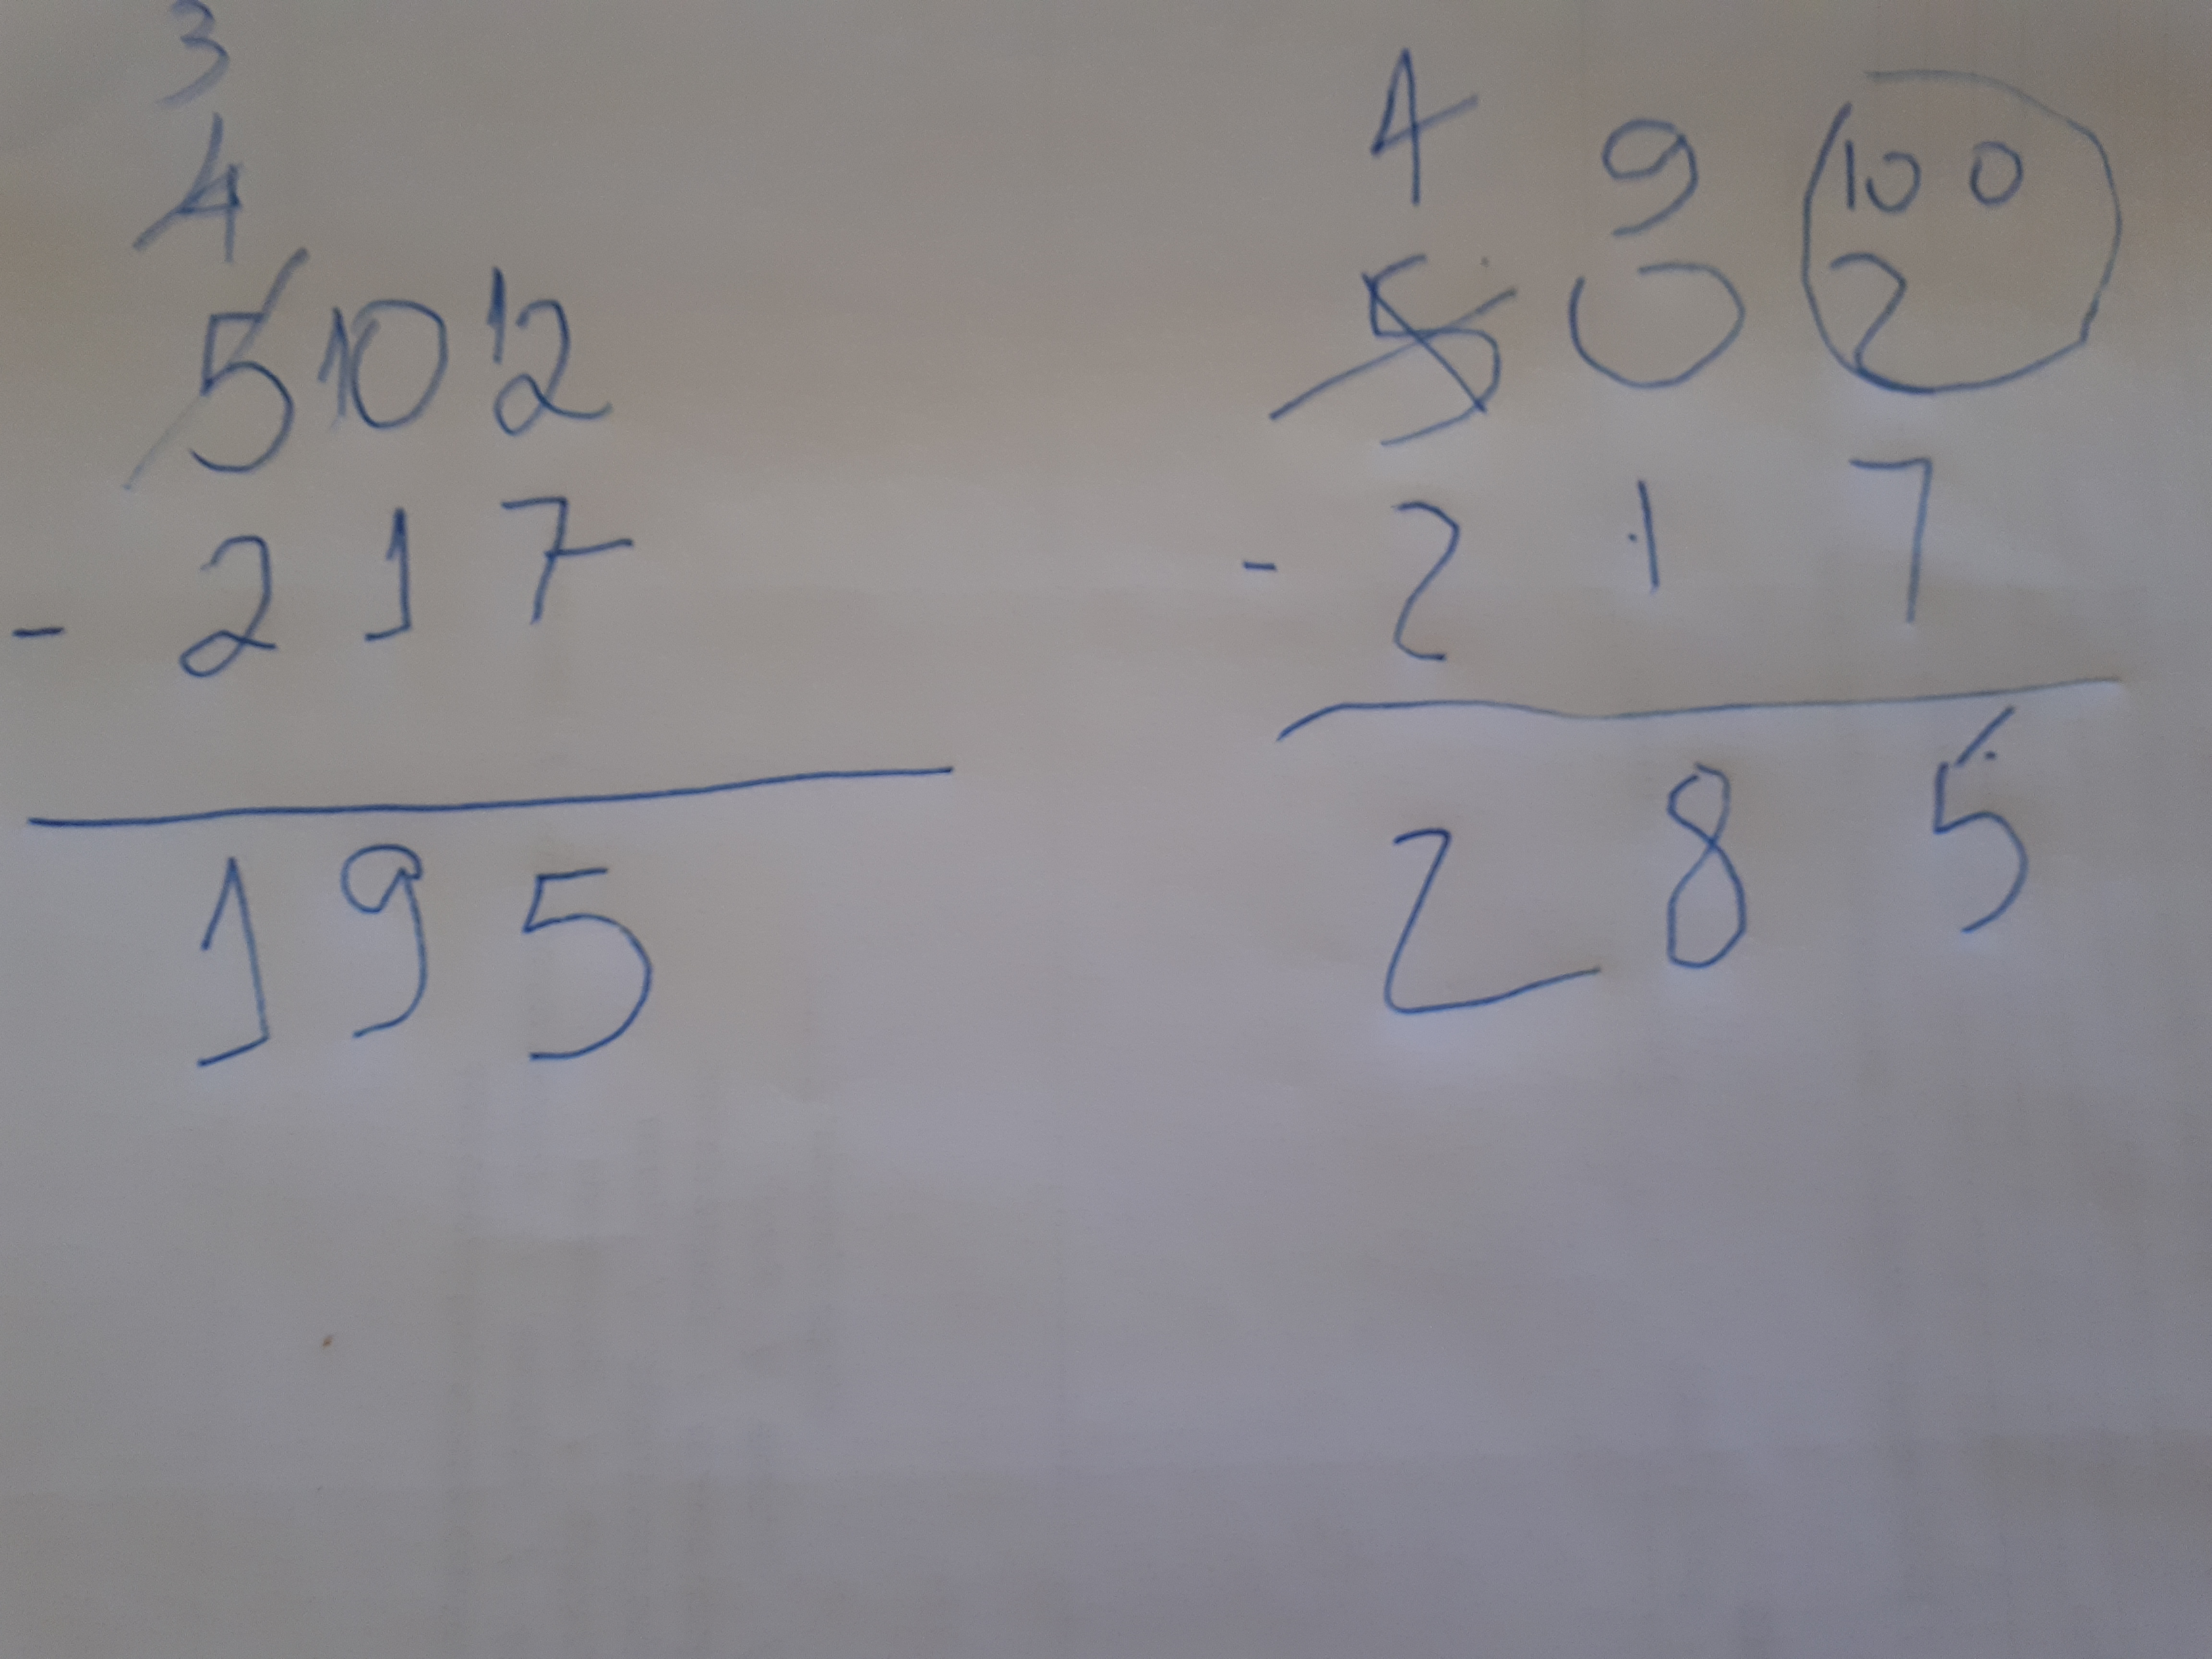 3
4
5 10 12
- 2 1 7
1 9 5
4 9 10 0
5 0 2
- 2 1 7
2 8 5